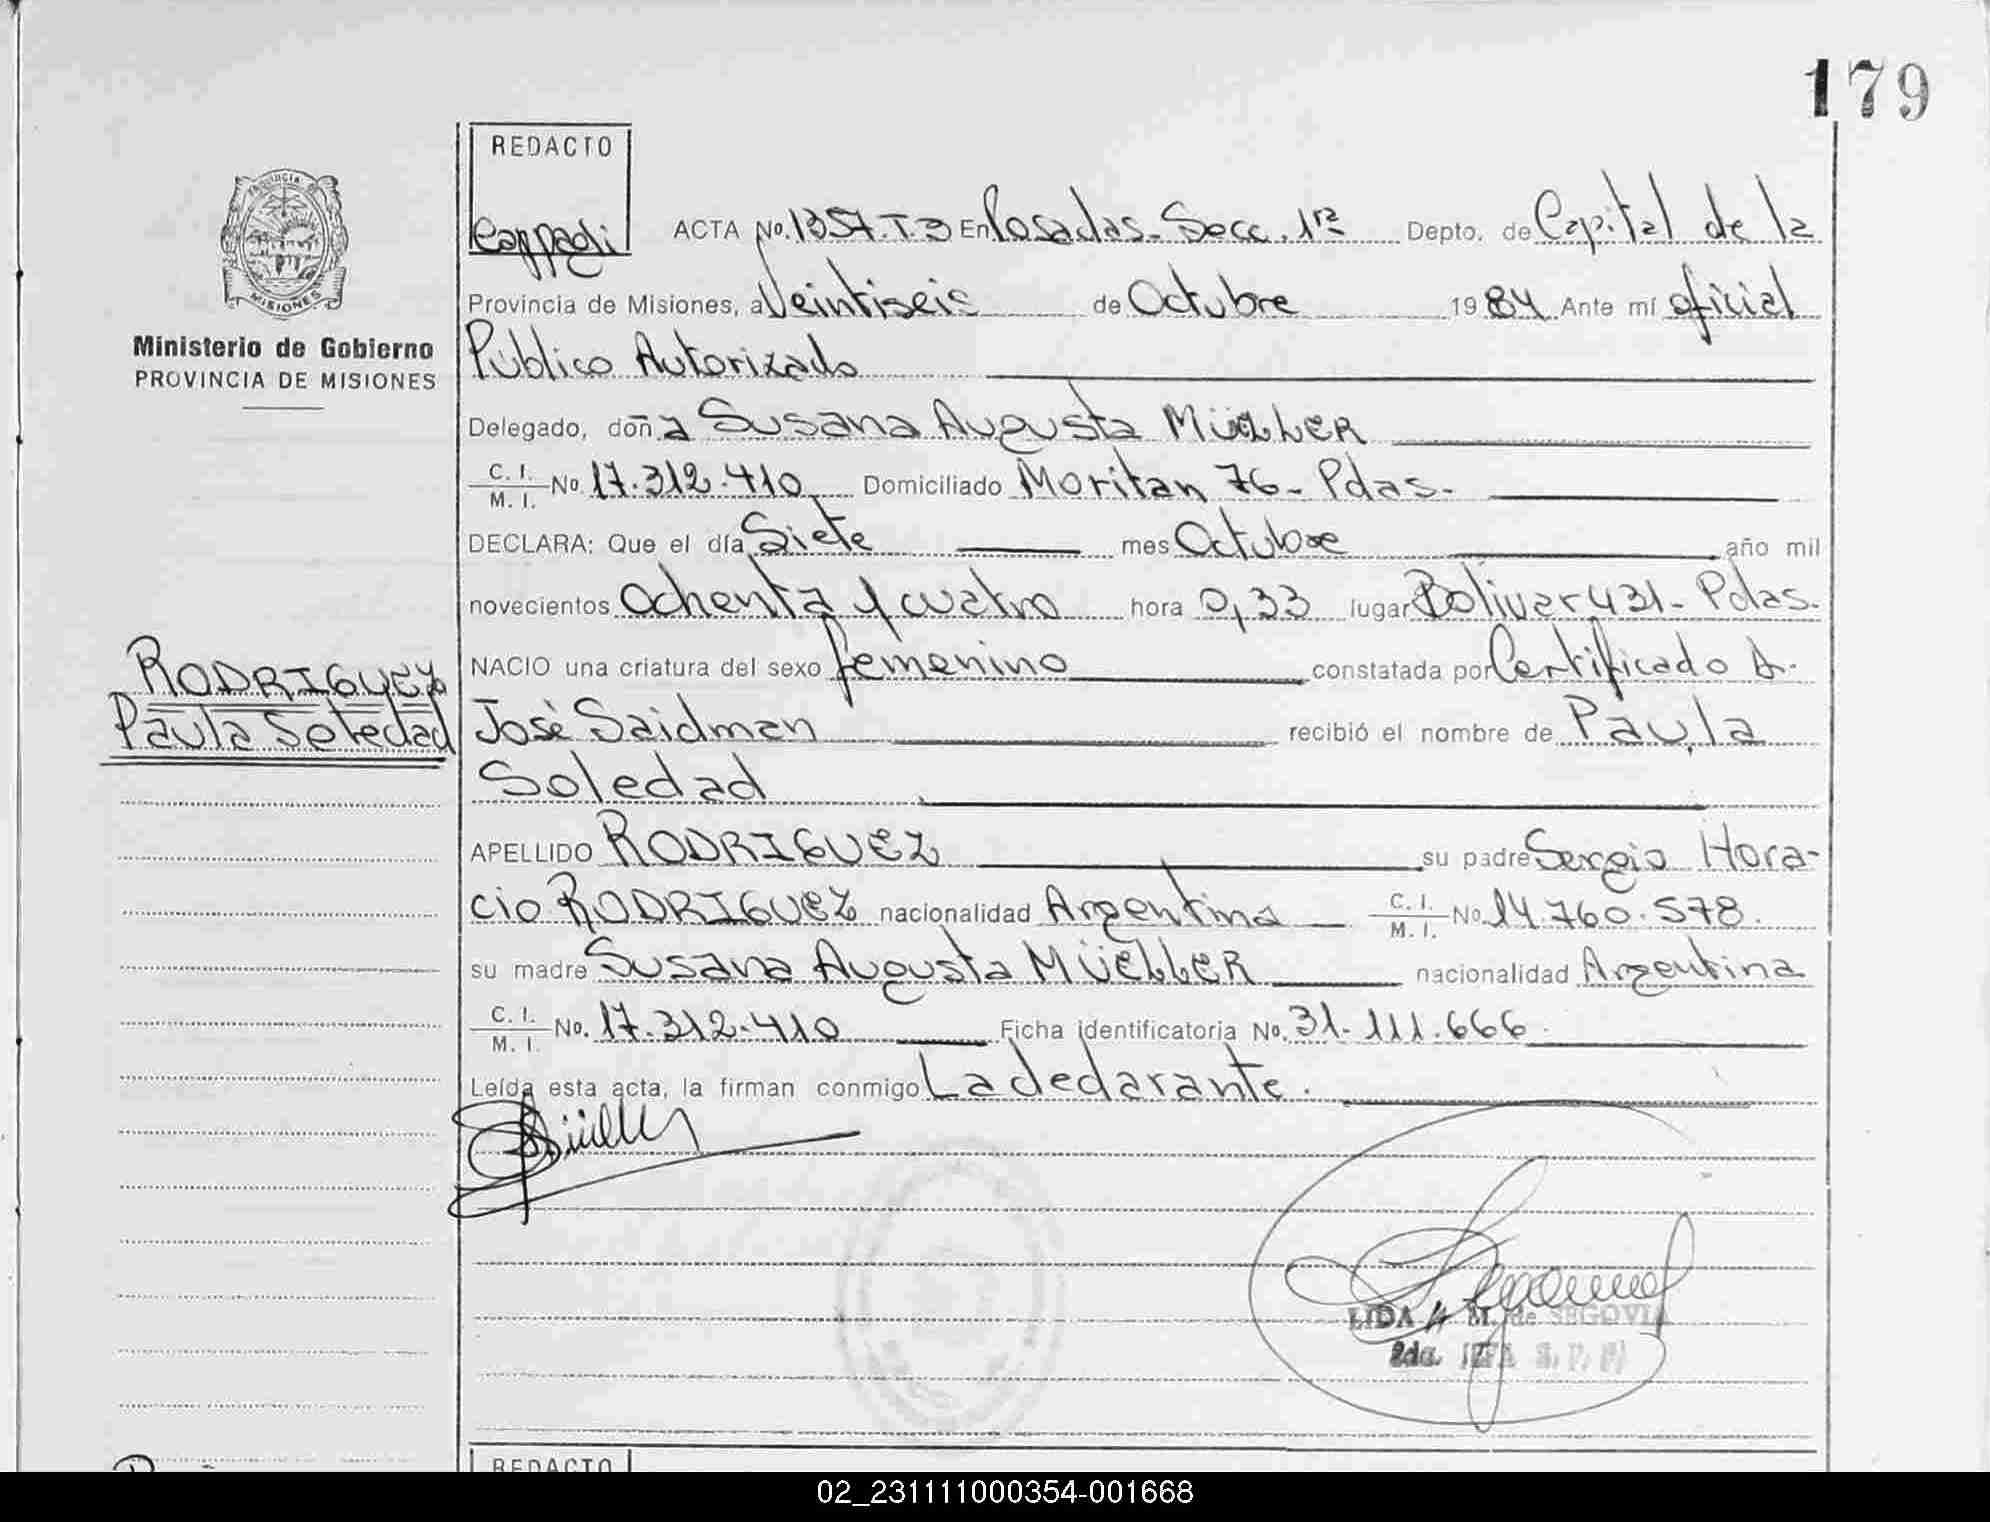 179
REDACTO
ACTA No. 1357. T. 3 En Posadas - Secc. 1ra Depto. de Capital de la
PROVINCIA DE MISIONES
Provincia de Misiones, a Veintiseis de Octubre 1984 Ante mí oficial
Ministerio de Gobierno
PROVINCIA DE MISIONES
Público Autorizado
Delegado, doña Susana Augusta MÜELLER
C. I. M. I. No. 17.312.410 Domiciliado Moritan 76 - Pdas.
DECLARA: Que el día Siete mes Octubre año mil
novecientos Ochenta y cuatro hora 0,33 lugar Bolivar 431 - Pdas.
RODRIGUEZ
NACIO una criatura del sexo femenino constatada por Certificado Dr.
Paula Soledad
José Saidman recibió el nombre de Paula
Soledad
APELLIDO RODRIGUEZ su padre Sergio Hora-
cio RODRIGUEZ nacionalidad Argentina C. I. M. I. No. 14.760.578.
su madre Susana Augusta MÜELLER nacionalidad Argentina
C. I. M. I. No. 17.312.410 Ficha identificatoria No. 31.111.666.
Leída esta acta, la firman conmigo La declarante.
LIDA M. de SEGOVIA
2da. JEFA
REDACTO
02_231111000354-001668